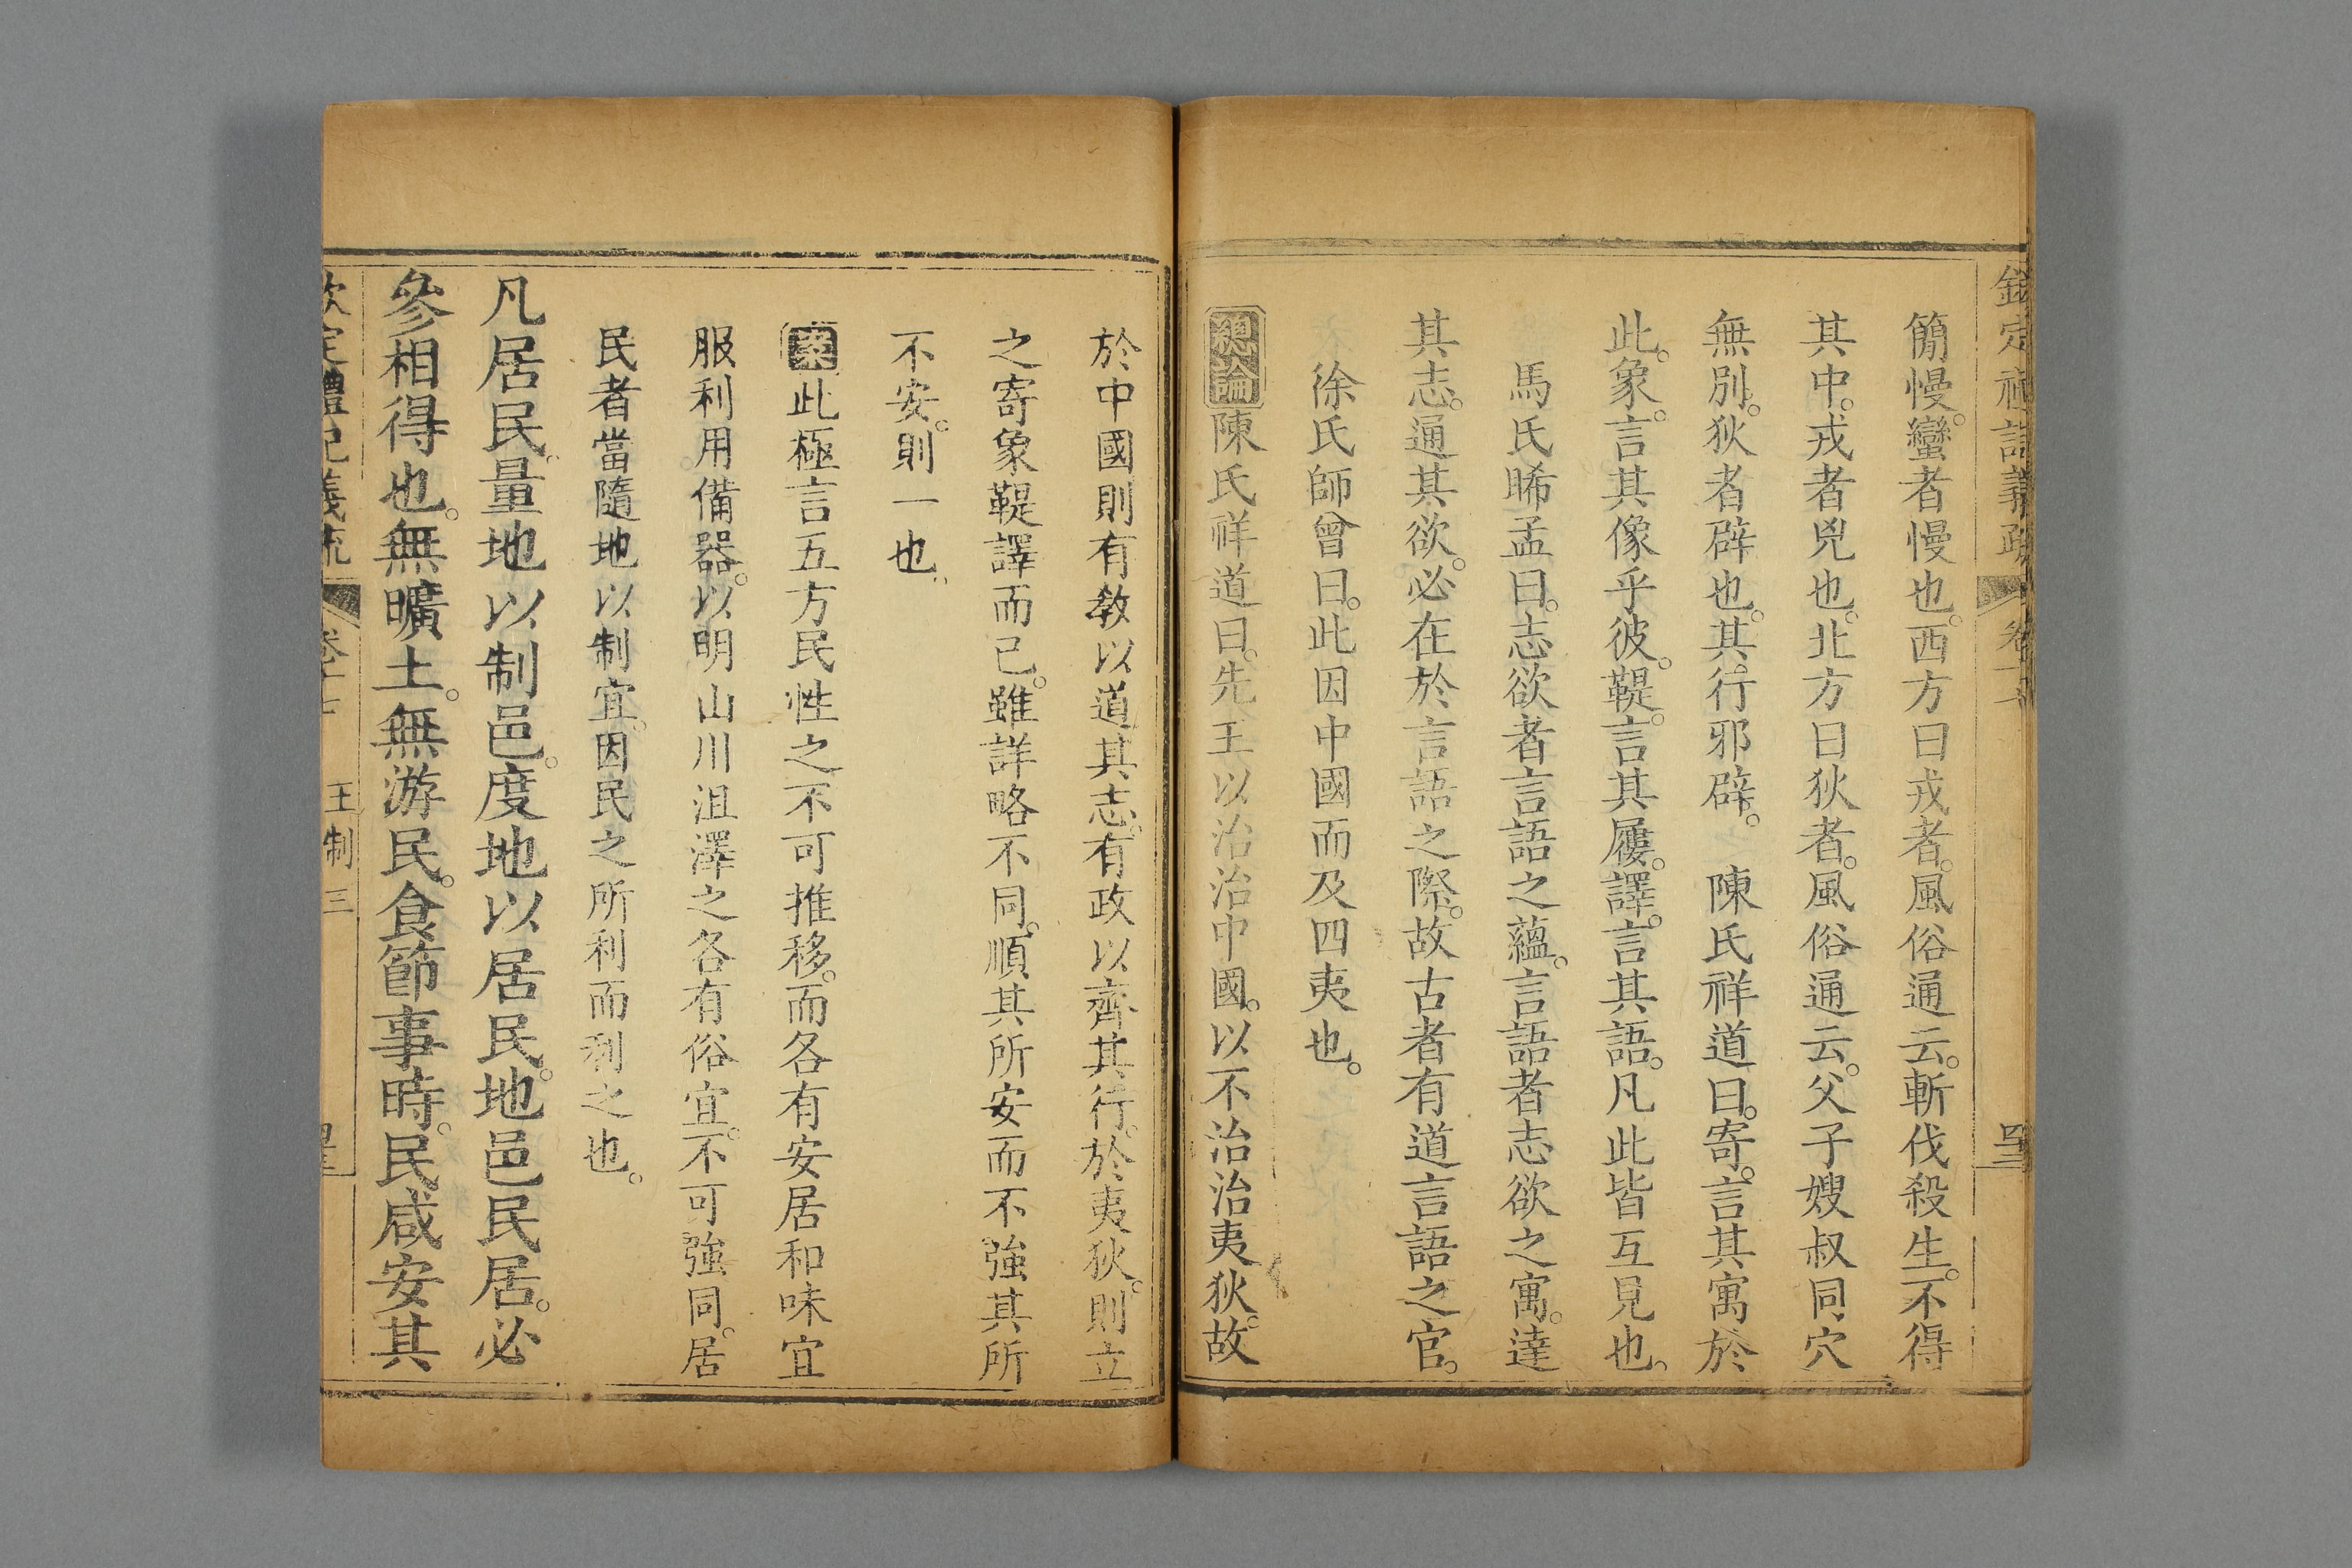 簡慢。蠻者慢也。西方曰戎者。風俗通云。斬伐殺生。不得
其中。戎者兇也。北方曰狄者。風俗通云。父子嫂叔同穴
無別。狄者辟也。其行邪辟。陳氏祥道曰。寄。言其寓於
此。象。言其像乎彼。鞮。言其屨。譯。言其語。凡此皆互見也。
馬氏晞孟曰。志欲者言語之蘊。言語者志欲之寓。達
其志。通其欲。必在於言語之際。故古者有道言語之官。
徐氏師曾曰。此因中國而及四夷也。
總論陳氏祥道曰。先王以治治中國。以不治治夷狄。故
於中國則有敎以道其志。有政以齊其行。於夷狄。則立
之寄象鞮譯而已。雖詳略不同。順其所安而不強其所
不安。則一也。
案此極言五方民性之不可推移。而各有安居和味宜
服利用備器。以明山川沮澤之各有俗宜。不可強同。居
民者當隨地以制宜。因民之所利而利之也。
凡居民。量地以制邑。度地以居民。地邑民居。必
參相得也。無曠土。無游民。食節事時。民咸安其
王制三